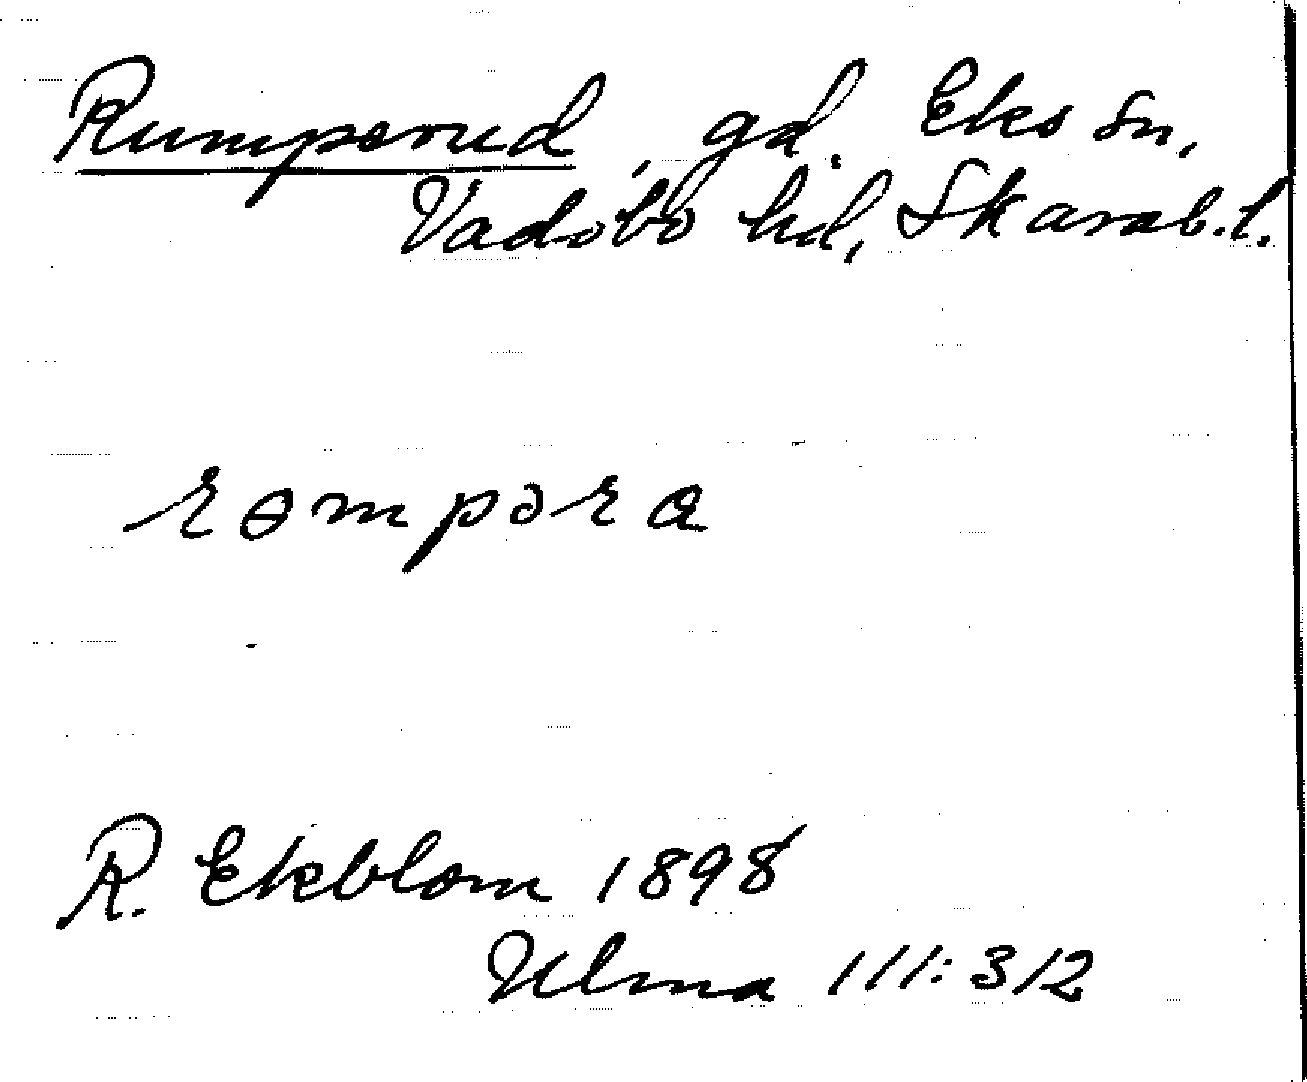 Rumperud, gd. Eks sn,
Vadsbo hd, Skarab.l.
rɵmpəra
R. Ekblom 1898
Ulma 111:312